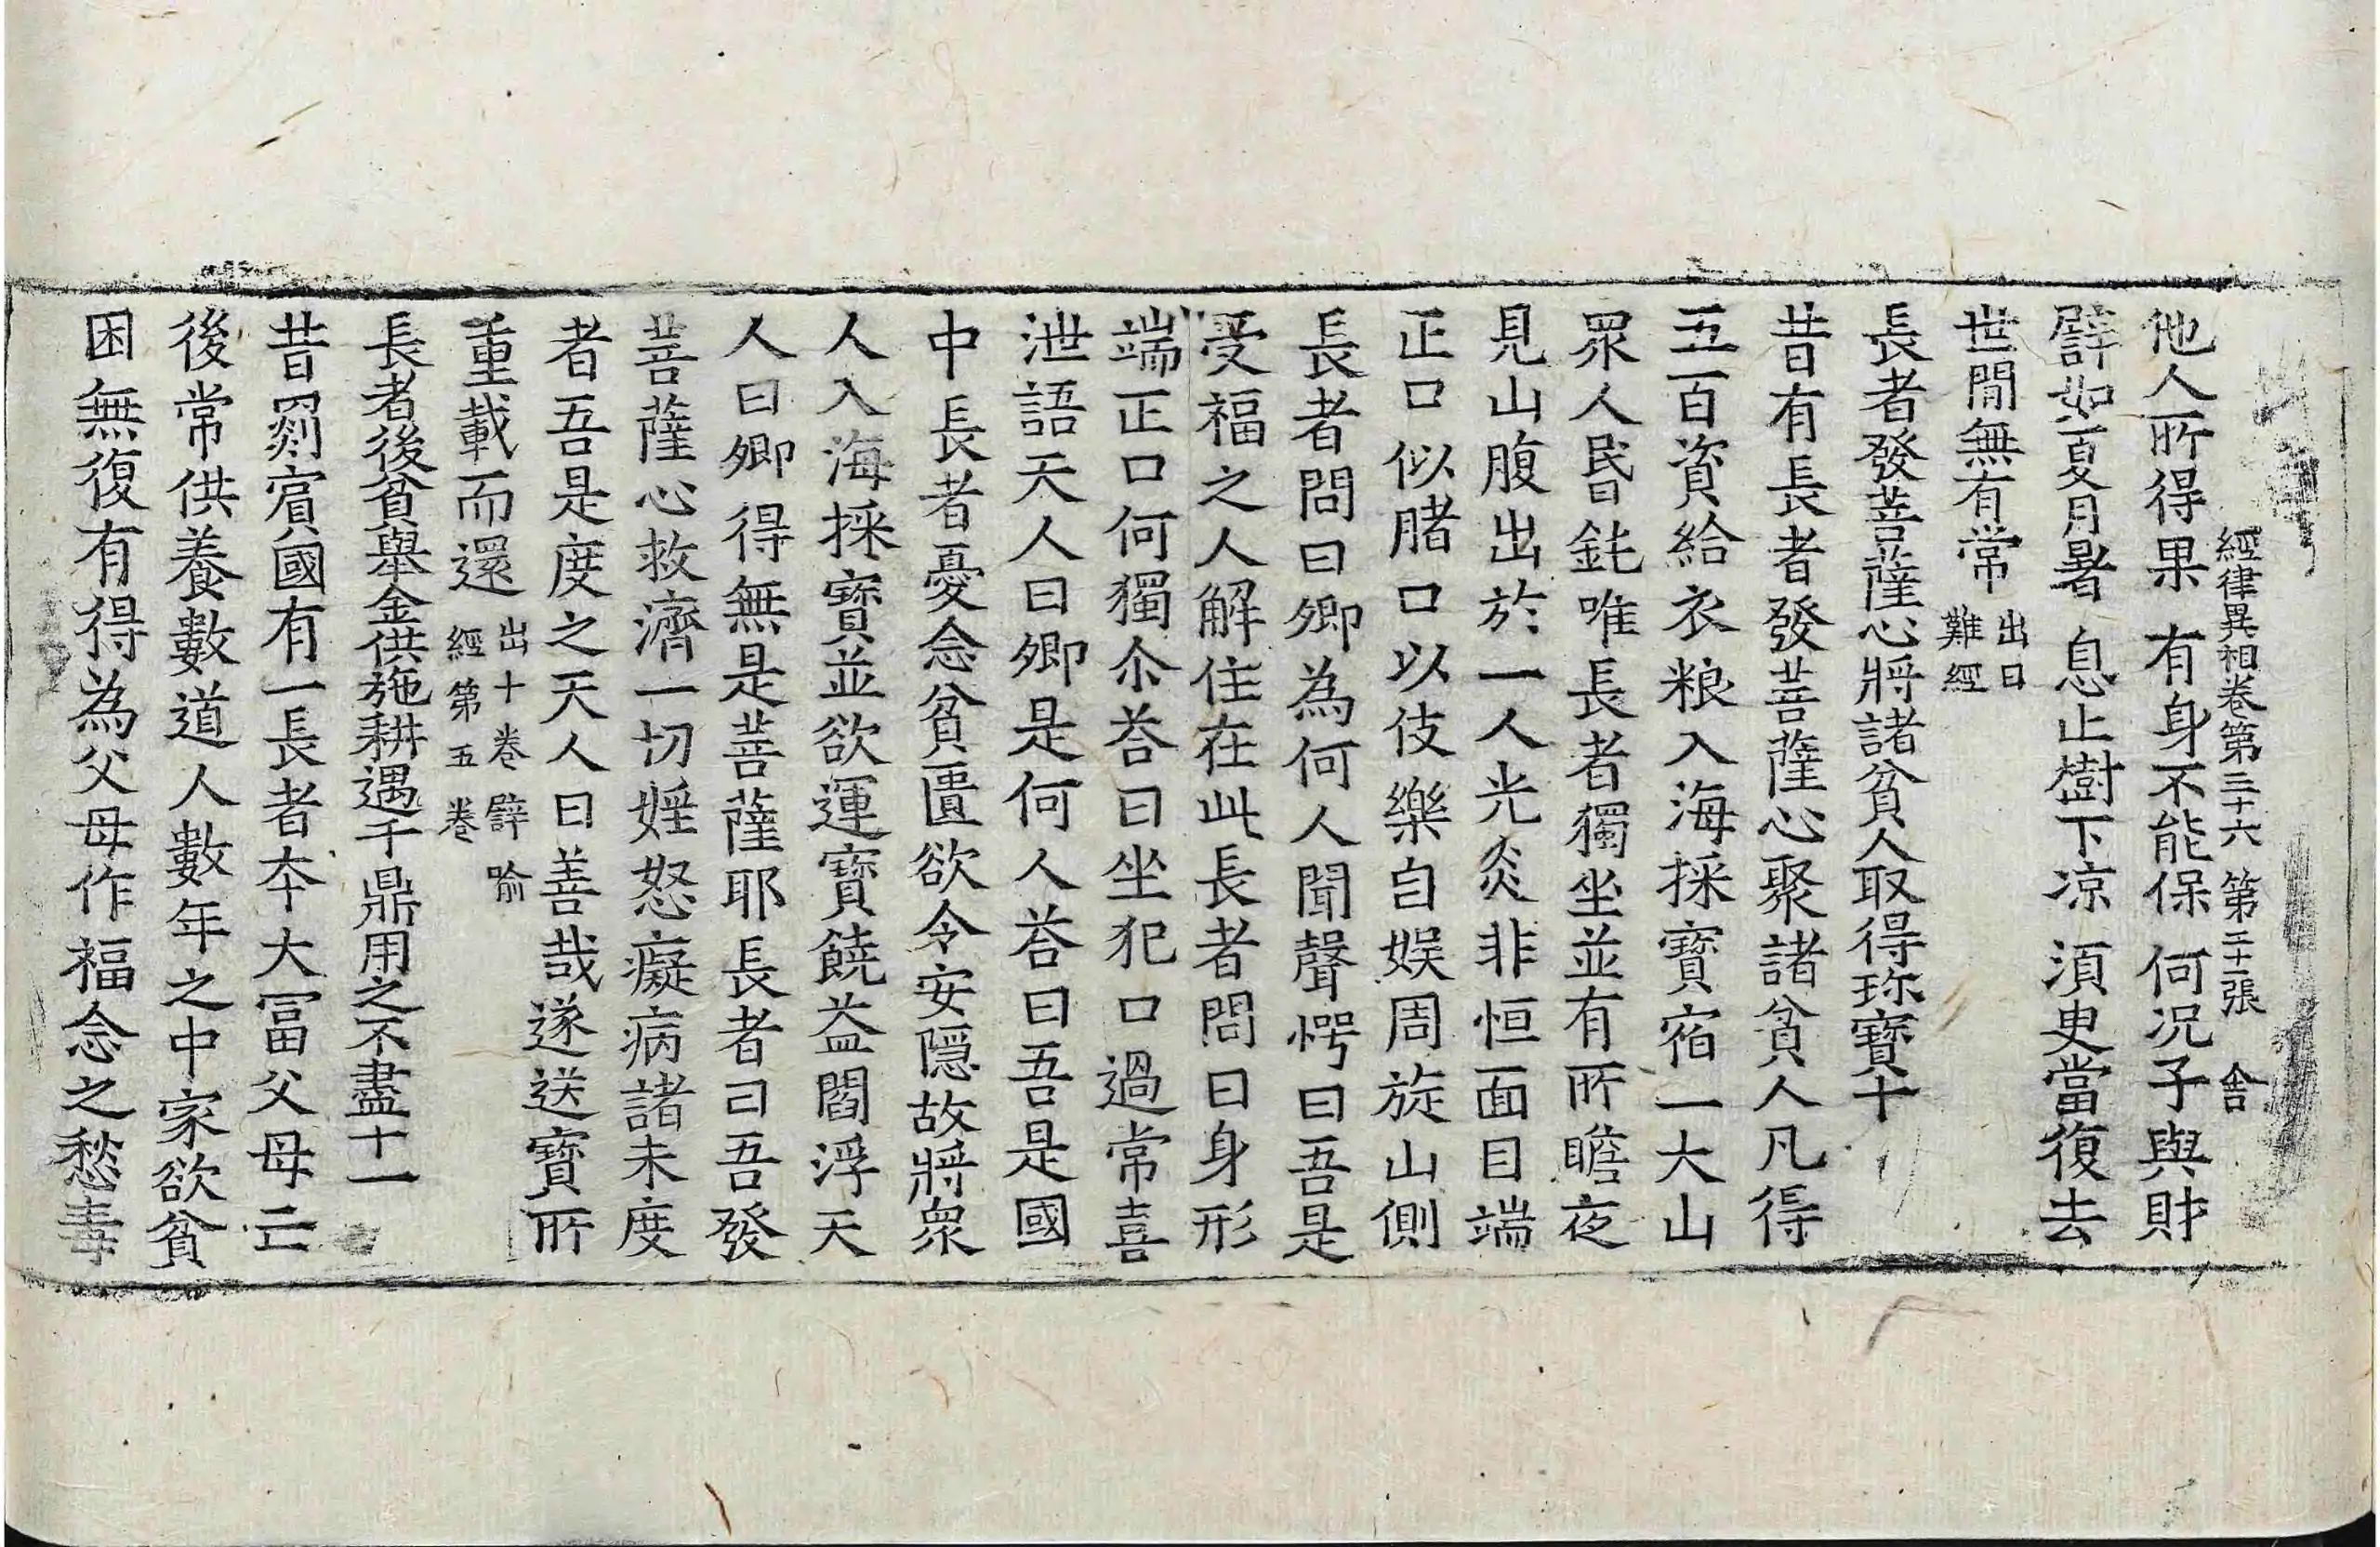 經律異相卷第三十六 第二十一張 舍
他人所得果 有身不能保 何況子與財
譬如夏月暑 息止樹下涼 須臾當復去
世閒無有常 出曰難經
長者發菩薩心將諸貧人取得珎寶十
昔有長者發菩薩心聚諸貧人凡得
五百資給衣粮入海採寶宿一大山
眾人昬鈍唯長者獨坐並有所瞻夜
見山腹出於一人光炎非恒面目端
正口似賭口以伎樂自娛周旋山側
長者問曰卿為何人聞聲愕曰吾是
受福之人解住在此長者問曰身形
端正口何獨尒荅曰坐犯口過常喜
泄語天人曰卿是何人荅曰吾是國
中長者憂念貧匱欲令安隱故將衆
人入海採寶並欲運寶饒益閻浮天
人曰卿得無是菩薩耶長者曰吾發
菩薩心救濟一切婬怒癡病諸未度
者吾是度之天人曰善哉遂送寶所
重載而還 出十卷譬喻經第五卷
長者後貧舉金供施耕遇千鼎用之不盡十一
昔罽賓國有一長者本大冨父母亡
後常供養數道人數年之中家欲貧
困無復有得為父母作福念之愁毒